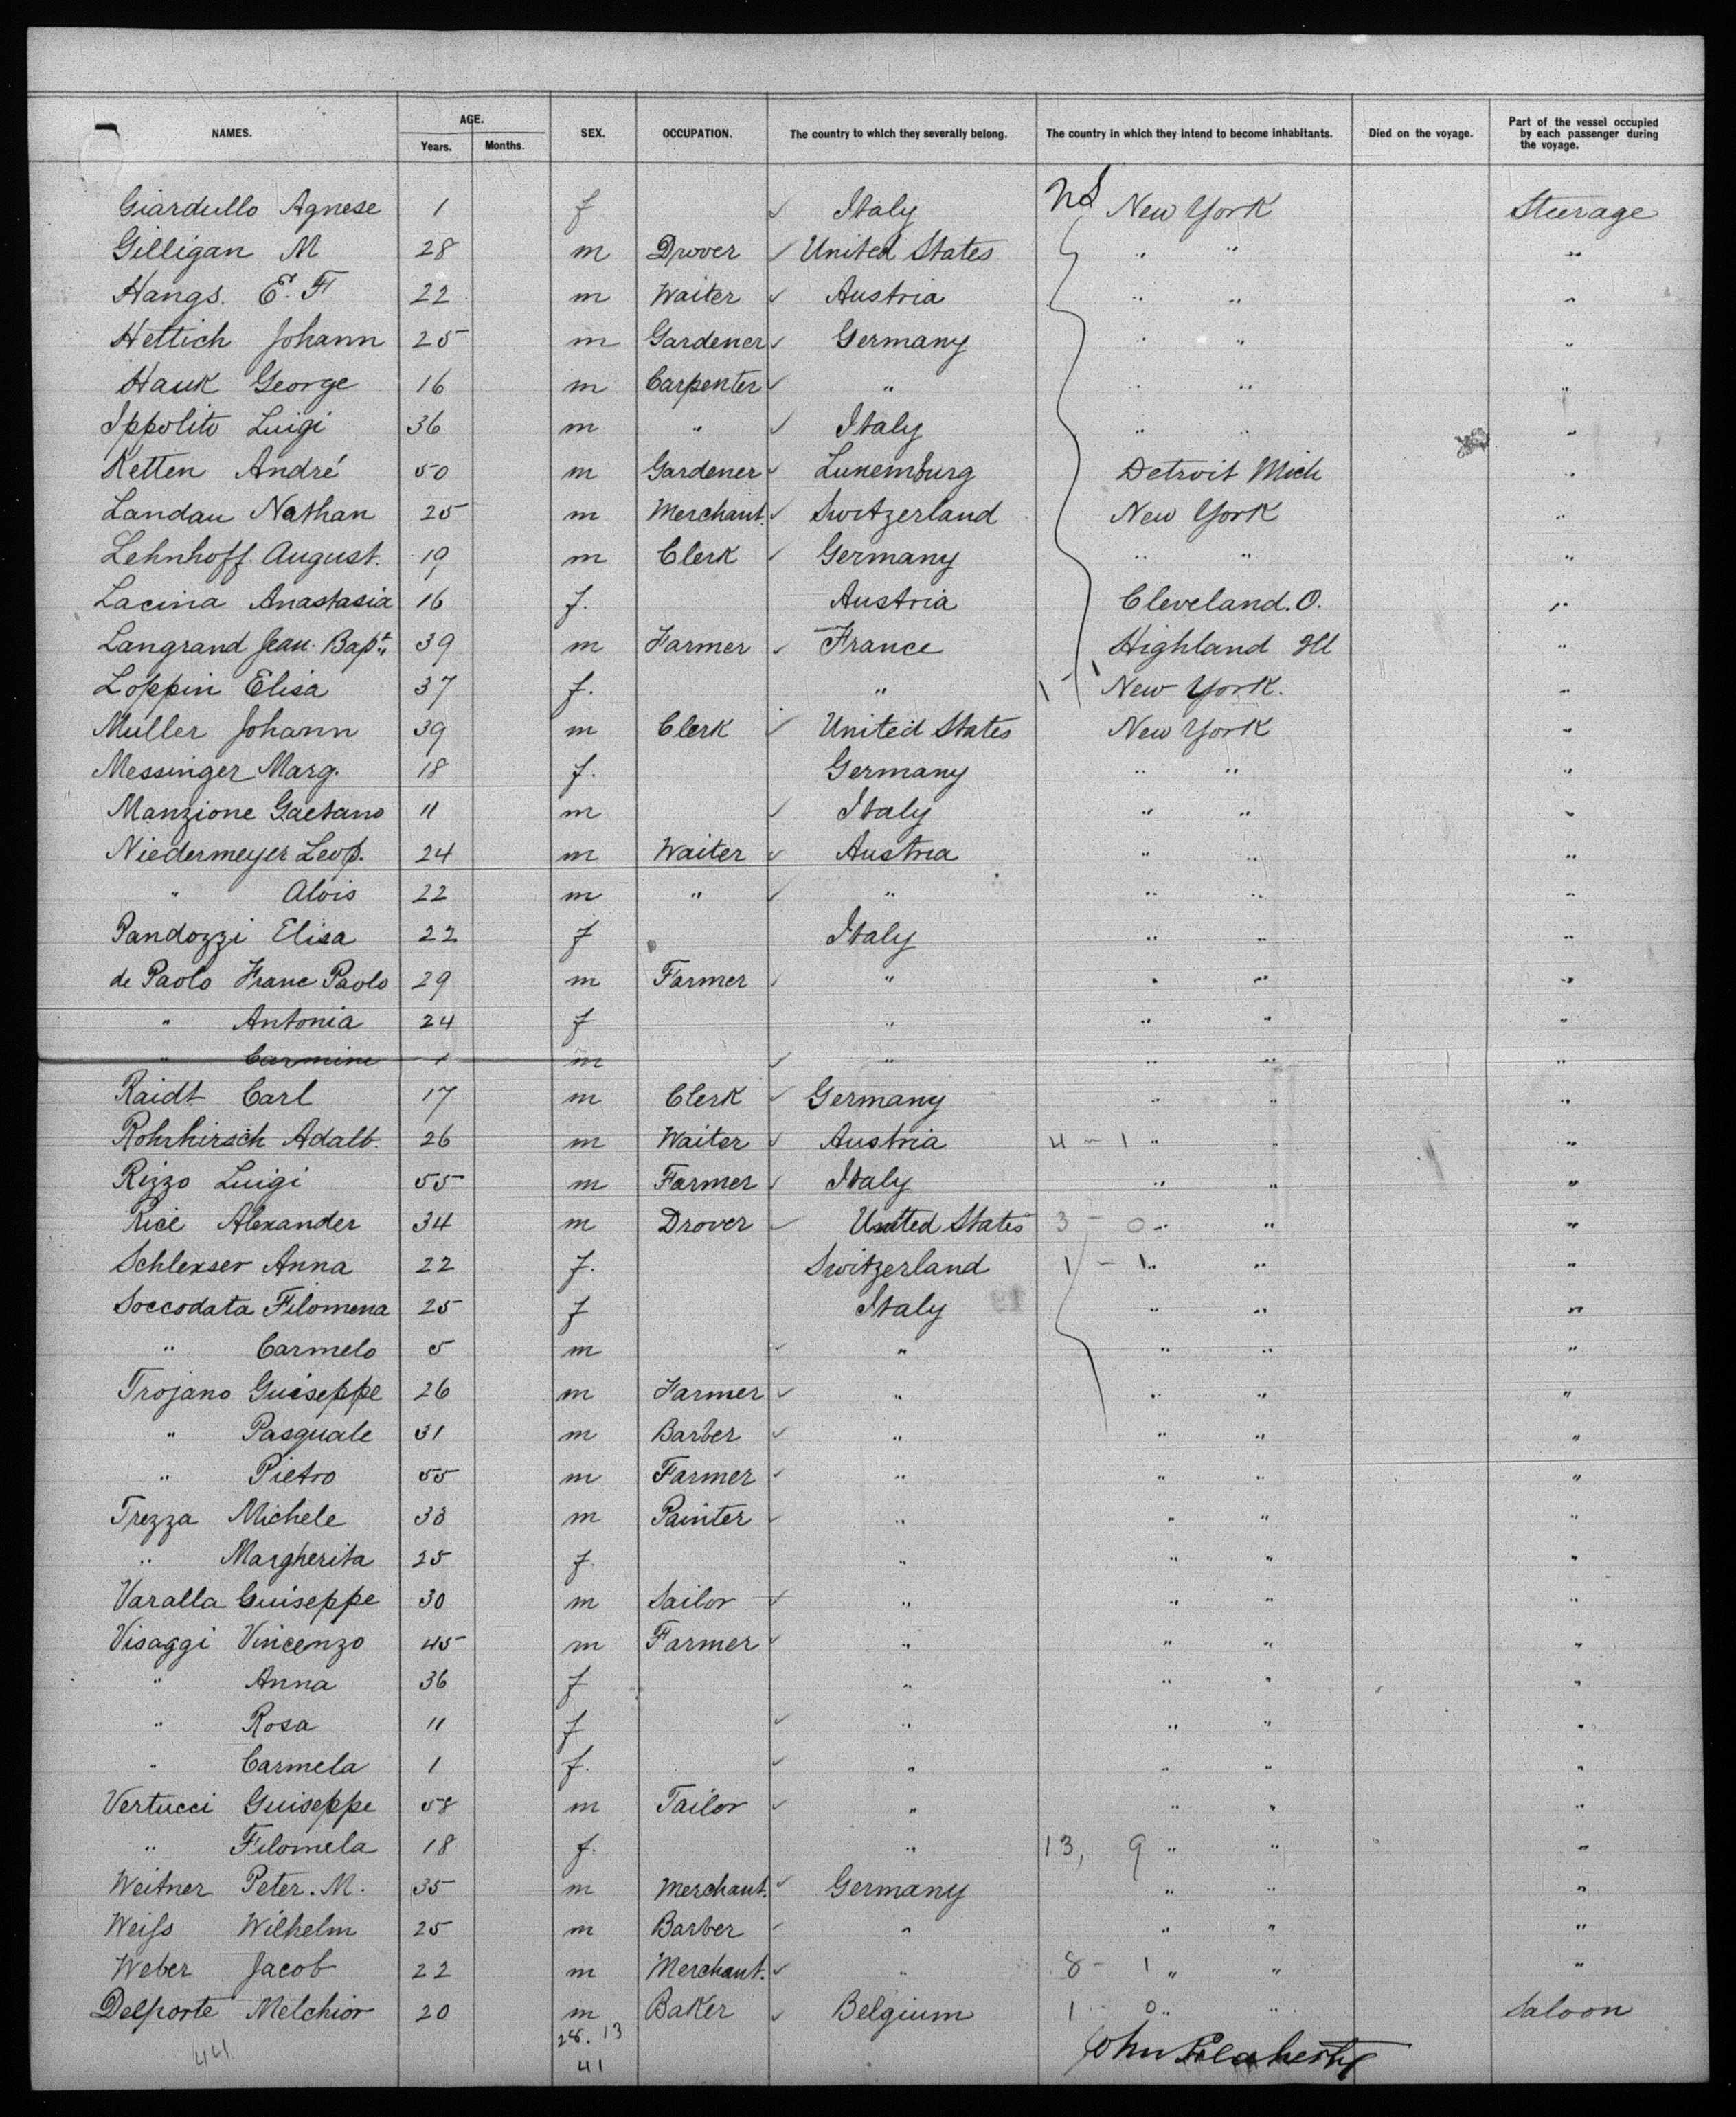 NAMES. AGE. Years. Months. SEX. OCCUPATION. The country to which they severally belong. The country in which they intend to become inhabitants. Died on the voyage. Part of the vessel occupied by each passenger during the voyage.
Giardullo Agnese 1 f ✓ Italy New York Steerage
Gilligan M 28 m Drover ✓ United States " " "
Hangs. E. F 22 m Waiter ✓ Austria " " "
Hettich Johann 25 m Gardener ✓ Germany " " "
Hauk George 16 m Carpenter ✓ " " " "
Ippolito Luigi 36 m " ✓ Italy " " "
Ketten André 50 m Gardener ✓ Luxemburg Detroit Mich "
Landau Nathan 25 m Merchant. ✓ Switzerland New York "
Lehnhoff. August. 19 m Clerk ✓ Germany " " "
Lacina Anastasia 16 f. Austria Cleveland. O. "
Langrand Jean. Bapt. 39 m Farmer ✓ France Highland Ill "
Loppin Elisa 37 f. " New York. "
Muller Johann 39 m Clerk ✓ United States New York "
Messinger Marg. 18 f. Germany " " "
Manzione Gaetano 11 m ✓ Italy " " "
Niedermeyer Leop. 24 m Waiter ✓ Austria " " "
" Alois 22 m " ✓ " " " "
Pandozzi Elisa 22 f Italy " " "
de Paolo Franc Paolo 29 m Farmer ✓ " " " "
" Antonia 24 f " " " "
" Carmine 1 m ✓ " " " "
Raidt Carl 17 m Clerk ✓ Germany " " "
Rohrhirsch Adalb. 26 m Waiter ✓ Austria 4 - 1 " " "
Rizzo Luigi 55 m Farmer ✓ Italy " " "
Rice Alexander 34 m Drover ✓ United States 3 - 0 " " "
Schlexser Anna 22 f. Switzerland 1 - 1 " " "
Soccodata Filomena 25 f Italy " " "
" Carmelo 5 m ✓ " " " "
Trojano Guiseppe 26 m Farmer ✓ " " " "
" Pasquale 31 m Barber ✓ " " " "
" Pietro 55 m Farmer ✓ " " " "
Trezza Michele 33 m Painter ✓ " " " "
" Margherita 25 f. " " " "
Varalla Guiseppe 30 m Sailor ✓ " " " "
Visaggi Vincenzo 45 m Farmer ✓ " " " "
" Anna 36 f " " " "
" Rosa 11 f ✓ " " " "
" Carmela 1 f. ✓ " " " "
Vertucci Guiseppe 58 m Tailor ✓ " " " "
" Filomela 18 f. " 13, 9 " " "
Weitner Peter. M. 35 m Merchant. ✓ Germany " " "
Weiſs Wilhelm 25 m Barber ✓ " " " "
Weber Jacob 22 m Merchant. ✓ " 8 - 1 " " "
Delporte Melchior 20 m Baker ✓ Belgium 1 - 0 " " Saloon
28. 13
44 41 John